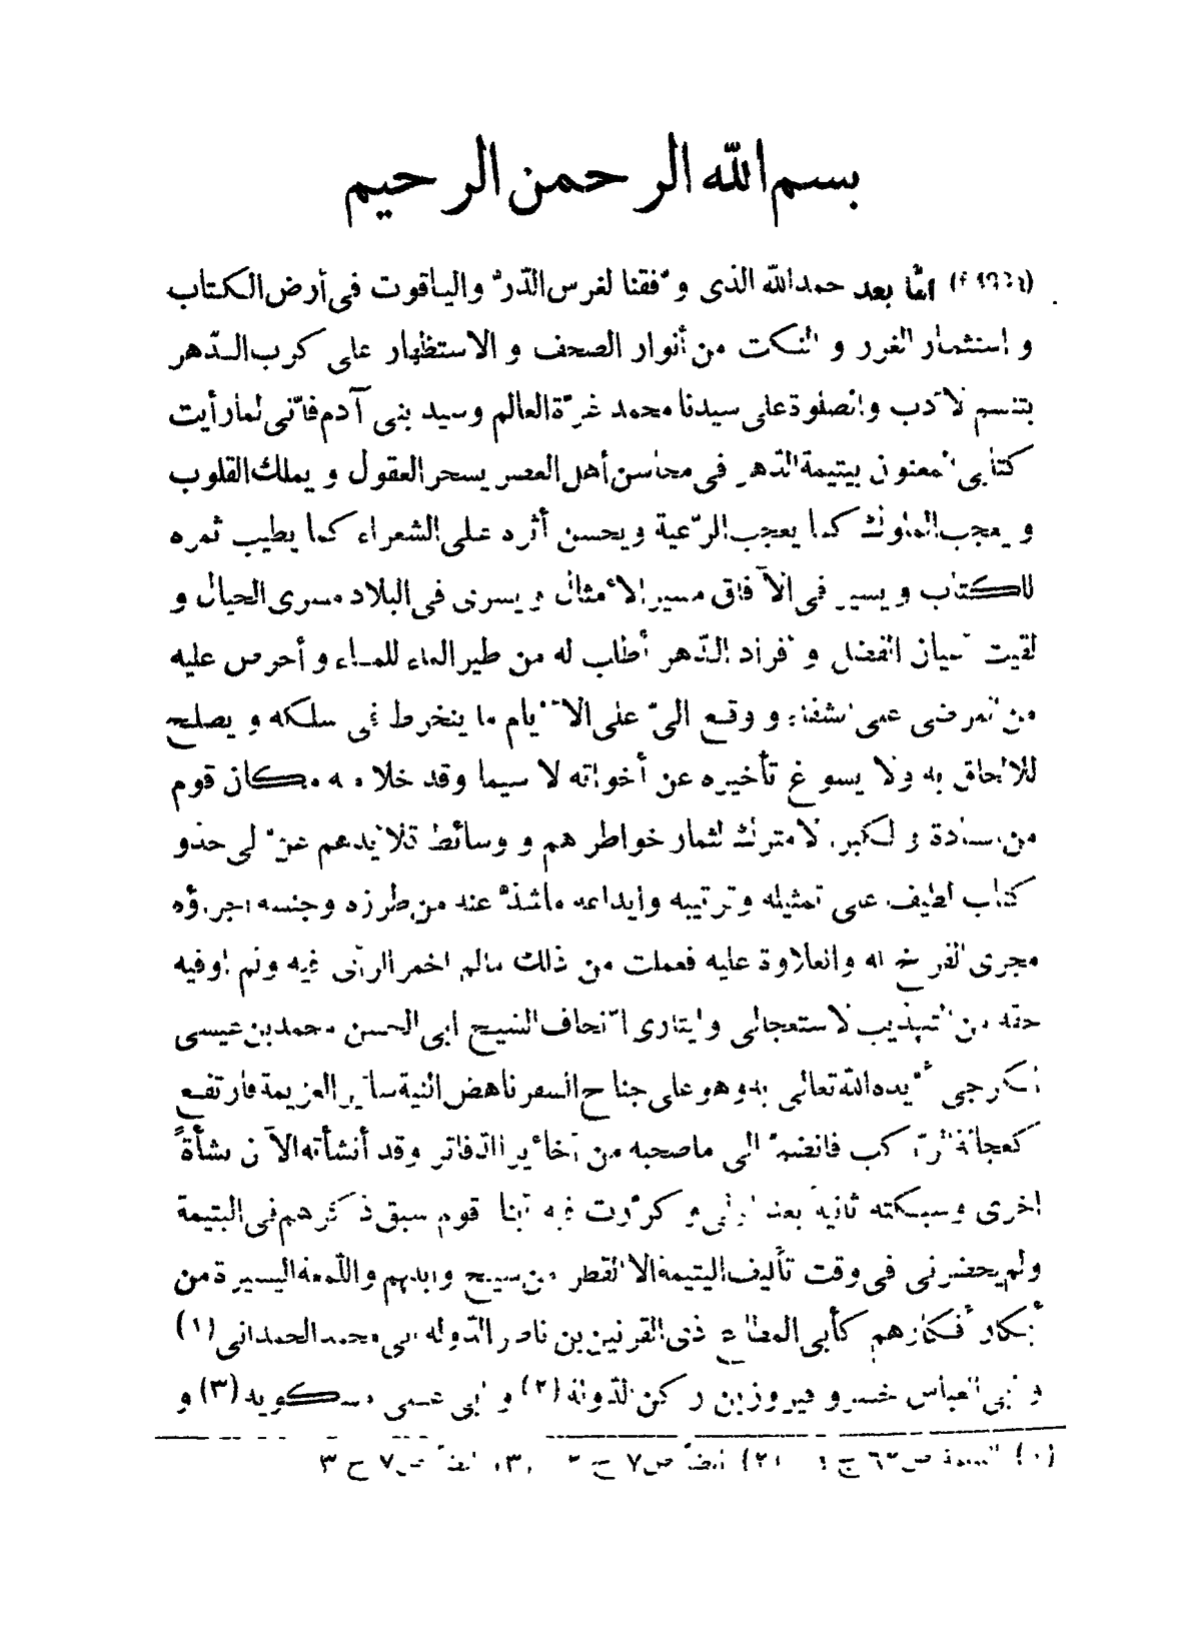 بسم الله الرحمن الرحيم
أمّا بعد حمدالله الذى وفّقنا لغرس الدّرّ والياقوت فى أرض الكتاب
و استثمار الغرر و النكت من أنوار الصحف و الاستظهار على كرب الدّهر
بتنسم الأدب والصلوة على سيدنا محمد غرّة العالم وسيد بنى آدم فانّنى لما رأيت
كتابى المعنون بيتيمة الدّهر فى محاسن أهل العصر يسحر العقول و يملك القلوب
و يعجب الملوك كما يعجب الرّعية ويحسن أثره على الشعراء كما يطيب ثمره
للكتاب و يسير فى الآفاق مسير الأمثال و يسرى فى البلاد مسرى الخيال و
لقيت أعيان الفضل و أفراد الدّهر أطلب له من طير الماء للماء و أحرص عليه
من المرضى على الشفاء و وقع الىّ على الأيام ما ينخرط فى سلكه و يصلح
للالحاق به ولا يسوغ تأخيره عن أخواته لا سيما وقد خلا منه مكان قوم
من السادة و الكبراء لا مترك لثمار خواطرهم و وسائط قلائدهم عن لى حذو
كتاب لطيف على تمثيله وترتيبه وايداعه ماشذّ عنه من طرزه وجنسه اجراؤه
مجرى الفرخ له والعلاوة عليه فعملت من ذلك مالم اخمر الرأى فيه ولم اوفيه
حقه من التهذيب لاستعجالى وايثارى اتحاف الشيخ ابى الحسن محمد بن عيسى
الكرجى أيّده الله تعالى به وهو على جناح السفر ناهض النية سائر العزيمة فارتفع
كعجالة الرّاكب فانضمّ الى ماصحبه من أخائر الدّفاتر وقد أنشأته الآن نشأةً
اخرى وسبكته ثانيةً بعد اولى و كرّرت فيه قوم سبق ذكرهم فى اليتيمة
ولم يحضرنى فى وقت تأليف اليتيمة الا القطر من سيح وابلهم واللّمعة اليسيرة من
أبكار أفكارهم كأبى المطاع ذى القرنين بن ناصر الدّوله ابى محمد الحمدانى (١)
و أبى العباس خسرو فيروز بن ركن الدّولة (٢) و أبى على مسكويه (٣) و
(١) اليتيمة ص٦٢ ج (٢) ايضاً ص٧ ج ٢ (٣) ايضاً ص٧ ج ٣